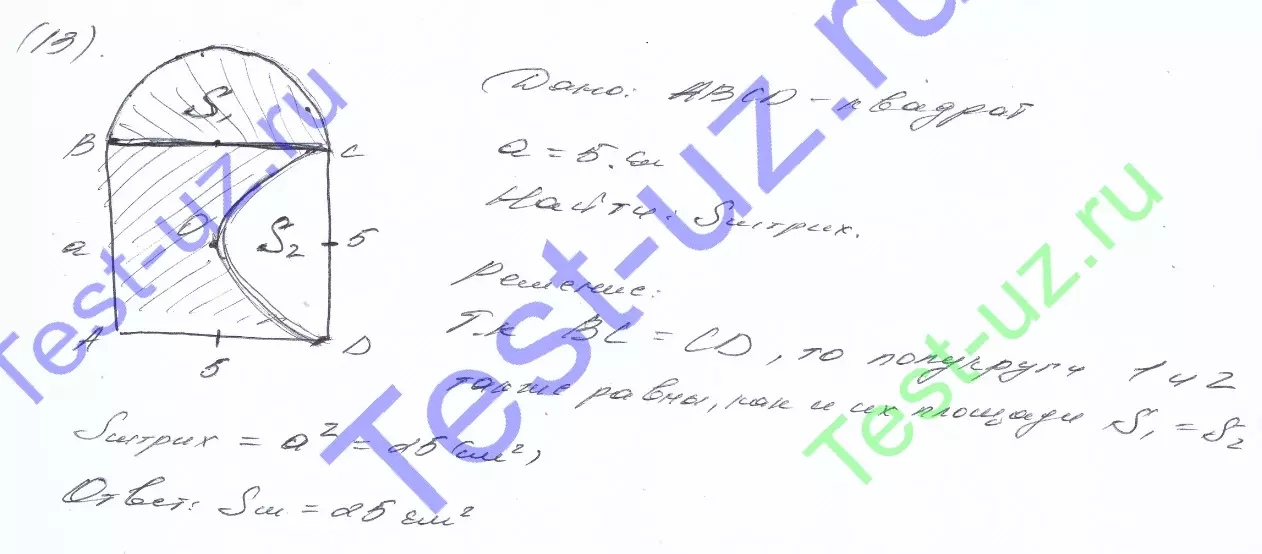 (13).
S₁
B
C
Дано: ABCD - квадрат
a = 5 см
Найти: Sштрих.
O
S₂
a
5
Решение:
A
D
5
Т.к BC = CD, то полукруги 1 и 2
также равны, как и их площади S₁ = S₂
Sштрих = a² = 25 см²,
Ответ: Sш = 25 см²
Test-uz.ru
Test-uz.ru
Test-uz.ru